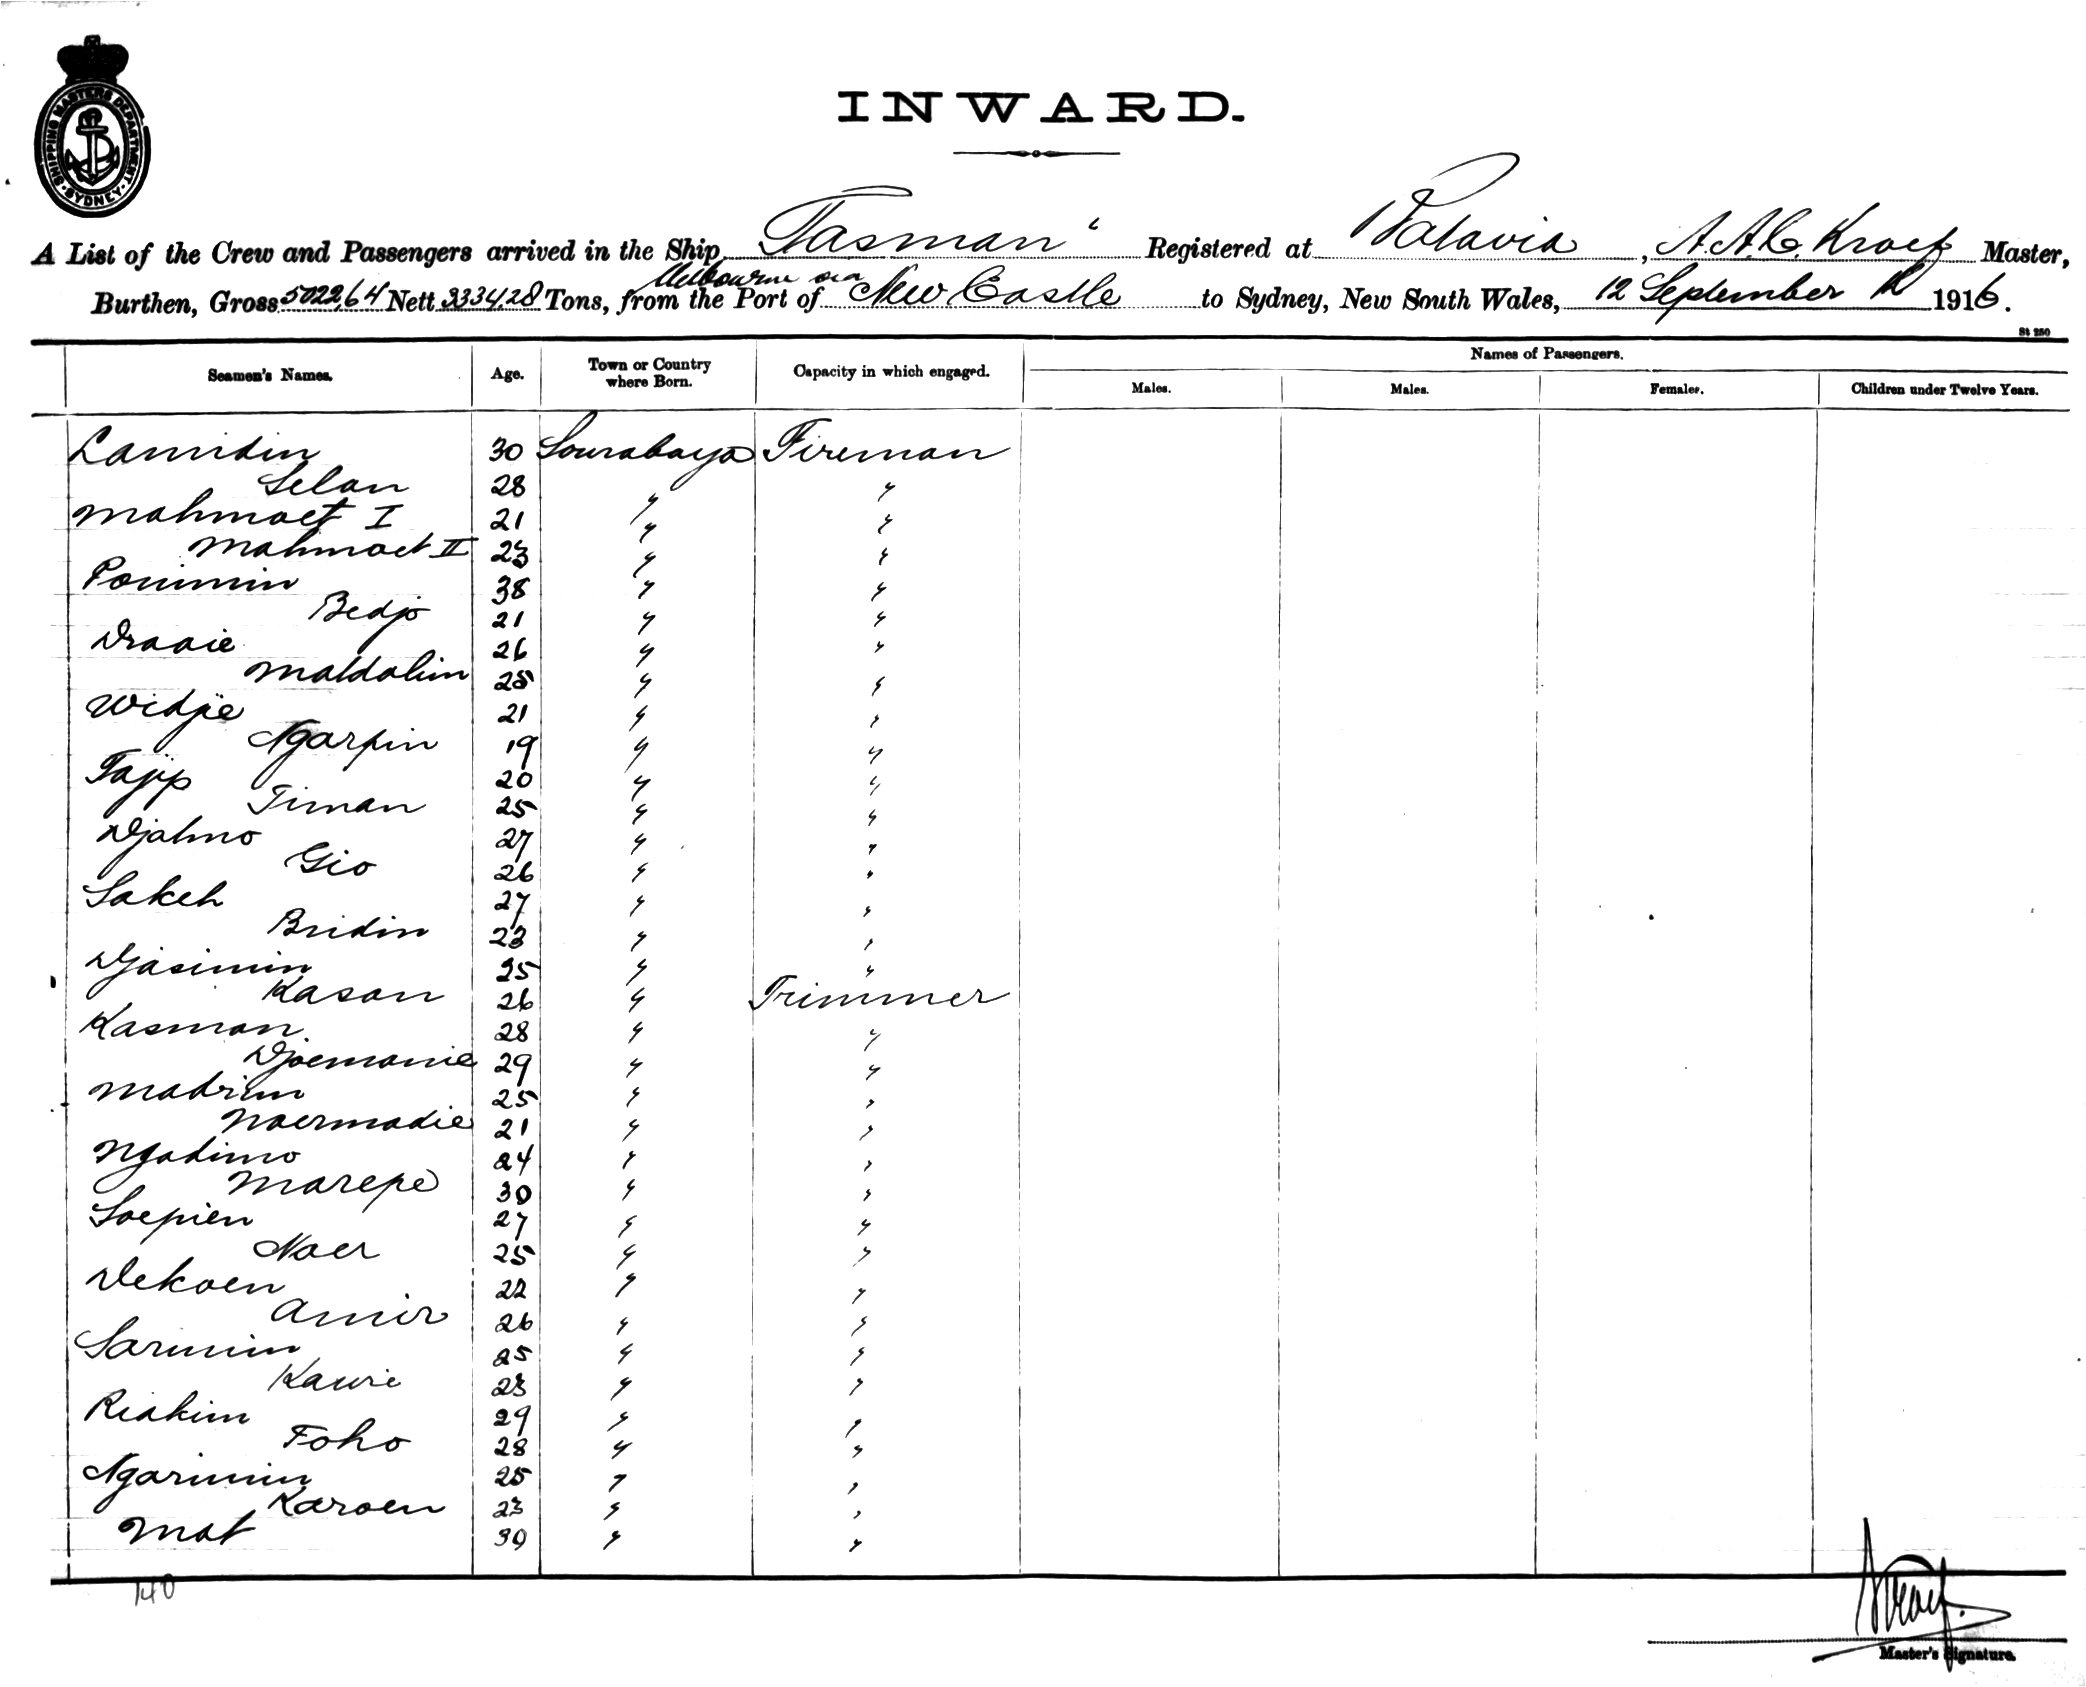 SHIPPING MASTERS DEPARTMENT · SYDNEY ·
INWARD.
A List of the Crew and Passengers arrived in the Ship "Tasman" Registered at Batavia, A.A.C. Kroef Master,
Melbourne via
Burthen, Gross 5022,64 Nett 3334,28 Tons, from the Port of New Castle to Sydney, New South Wales, 12 September 1916.
St 250
Seamen's Names. Age. Town or Country where Born. Capacity in which engaged. Names of Passengers.
Males. Males. Females. Children under Twelve Years.
Lamidin 30 Sourabaya Fireman
Selan 28 " "
Mahmoet I 21 " "
Mahmoet II 23 " "
Ponimin 38 " "
Bedjo 21 " "
Draaie 26 " "
Matdalim 25 " "
Widjie 21 " "
Ngarpin 19 " "
Tajip 20 " "
Timan 25 " "
Djahmo 27 " "
Gio 26 " "
Sakeh 27 " "
Bridin 23 " "
Djasimin 25 " "
Kasan 26 " Trimmer
Kasman 28 " "
Djoemanie 29 " "
Madrim 25 " "
Noermadie 21 " "
Ngadimo 24 " "
Marepe 30 " "
Soepien 27 " "
Noer 25 " "
Dekoen 22 " "
Amir 26 " "
Sarimin 25 " "
Kawie 23 " "
Riakim 29 " "
Toho 28 " "
Ngarimin 25 " "
Karoen 23 " "
Mat 30 " "
140
Kroef.
Master's Signature.